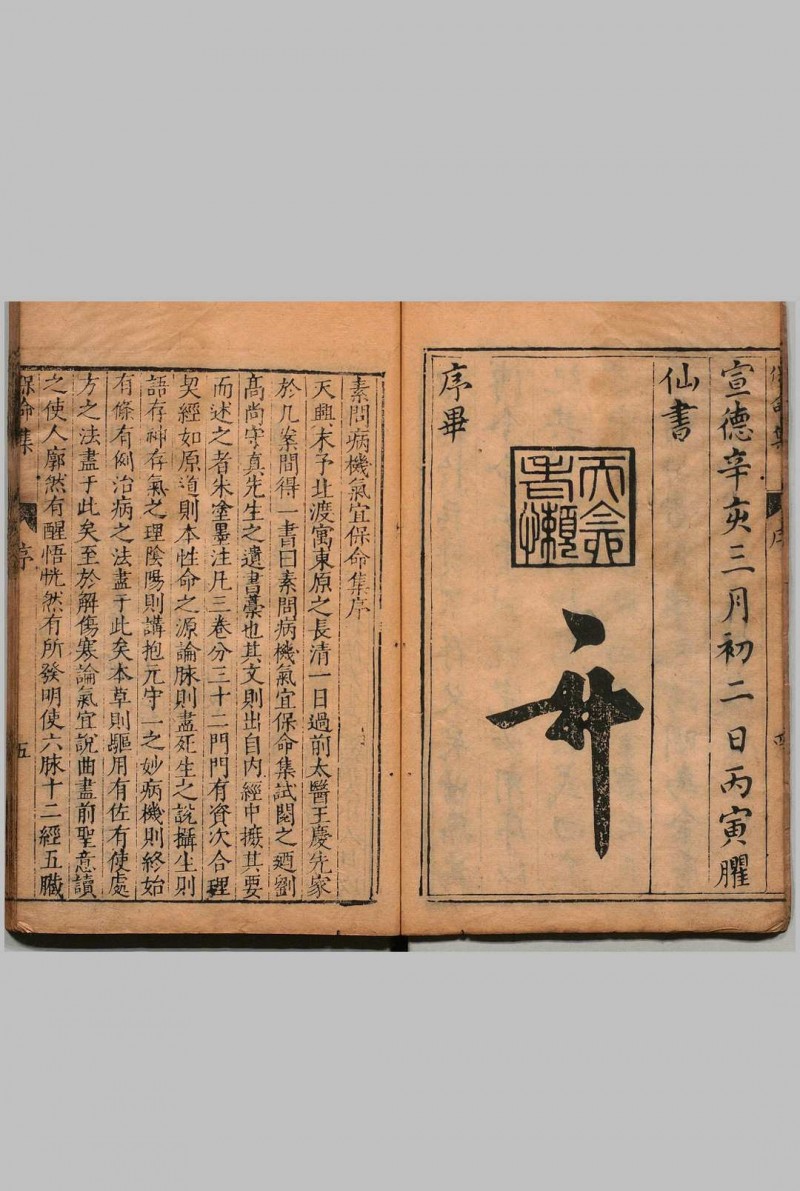 宣德辛亥三月初二日丙寅臞
仙書
序畢
素問病機氣宜保命集序
天興末予北渡寓東原之長清一日過前太醫王慶先家
於几案間得一書曰素問病機氣宜保命集試閱之廼劉
高尚守真先生之遺書藁也其文則出自內經中摭其要
而述之者朱塗墨注凡三卷分三十二門門有資次合理
契經如原道則本性命之源論脉則盡死生之說攝生則
語存神存氣之理陰陽則講抱元守一之妙病機則終始
有條有例治病之法盡于此矣本草則驅用有佐有使處
方之法盡于此矣至於解傷寒論氣宜說曲盡前聖意讀
之使人廓然有醒悟恍然有所發明使六脉十二經五臟
保命集
序
五